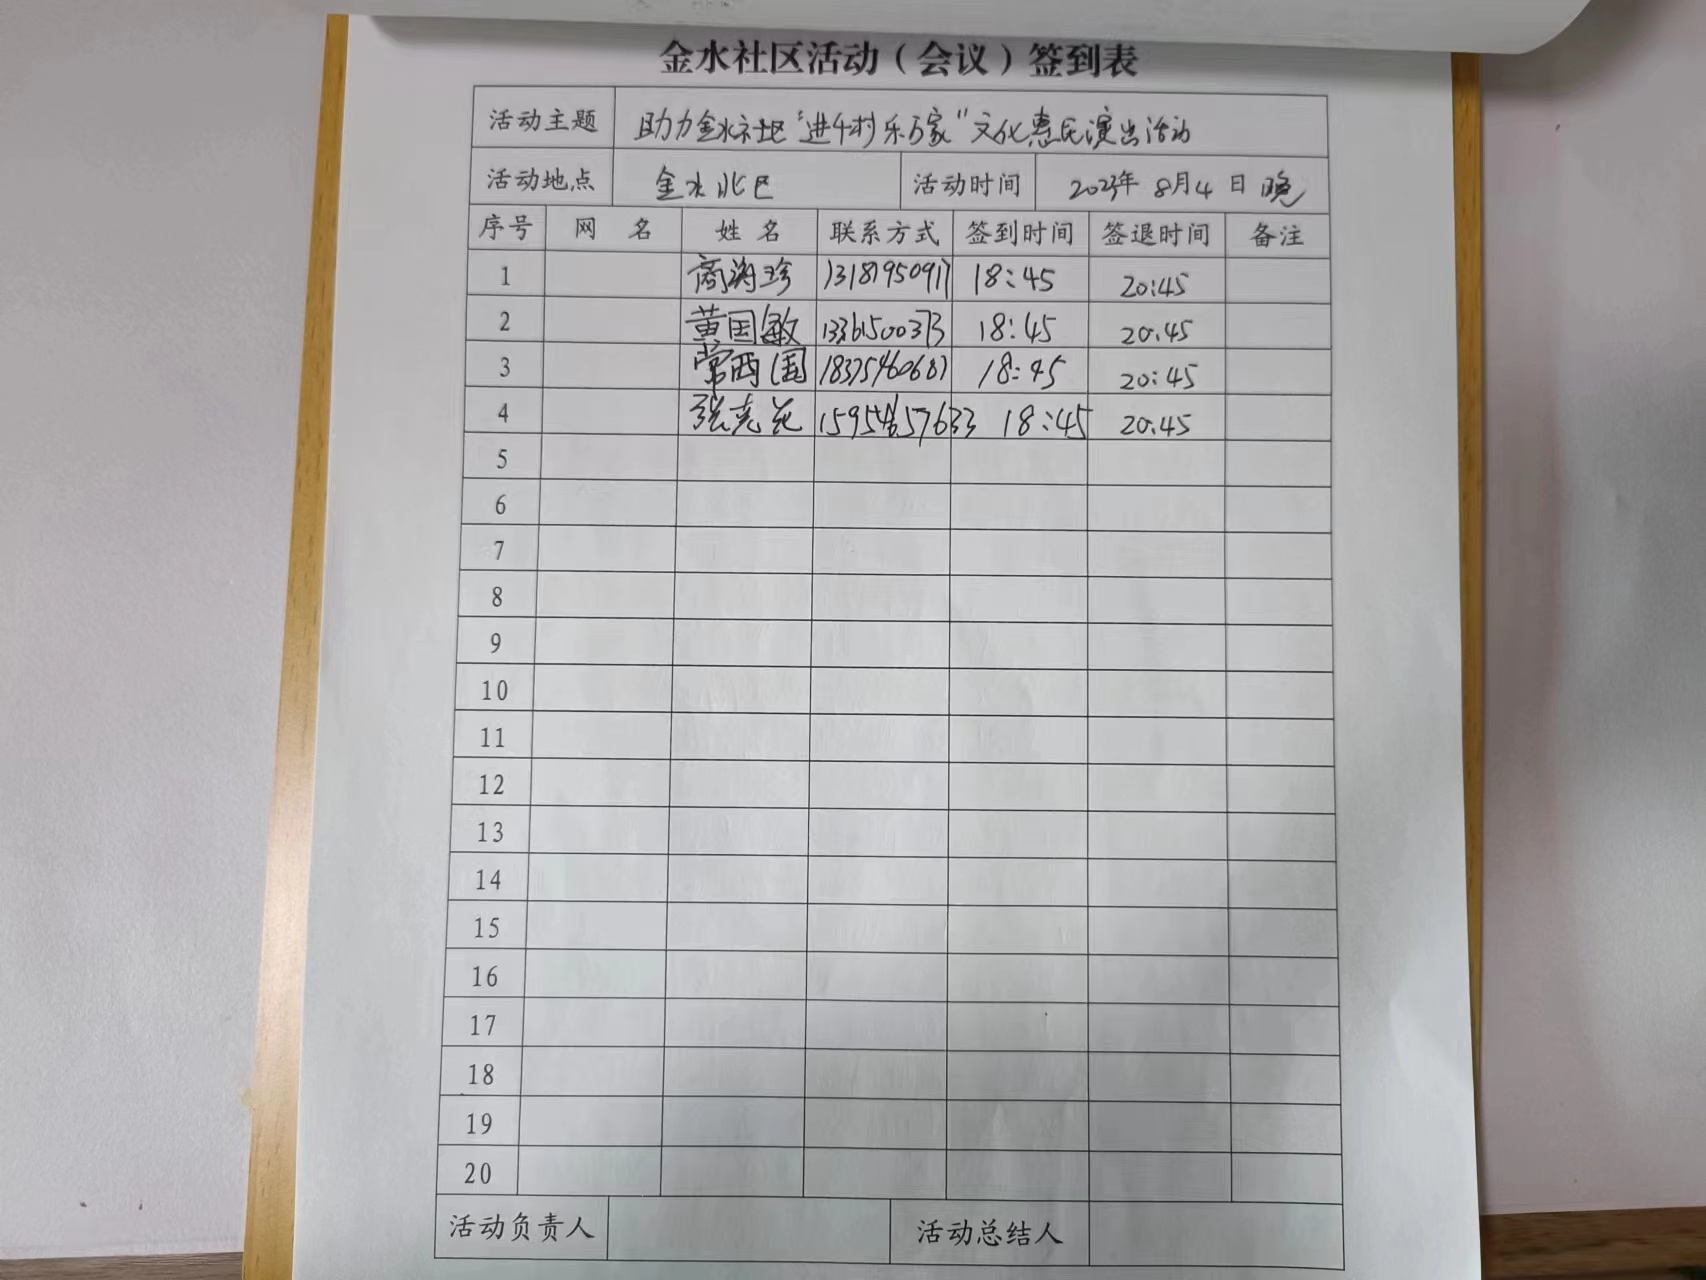 金水社区活动（会议）签到表
活动主题 助力金水社区“进千村乐万家”文化惠民演出活动
活动地点 金水北区 活动时间 2023年8月4日晚
序号 网名 姓名 联系方式 签到时间 签退时间 备注
1 商海珍 13181950917 18:45 20:45
2 黄国敏 13361500373 18:45 20.45
3 常西国 18:45 20:45
4 15954657633 18:45 20.45
5
6
7
8
9
10
11
12
13
14
15
16
17
18
19
20
活动负责人 活动总结人